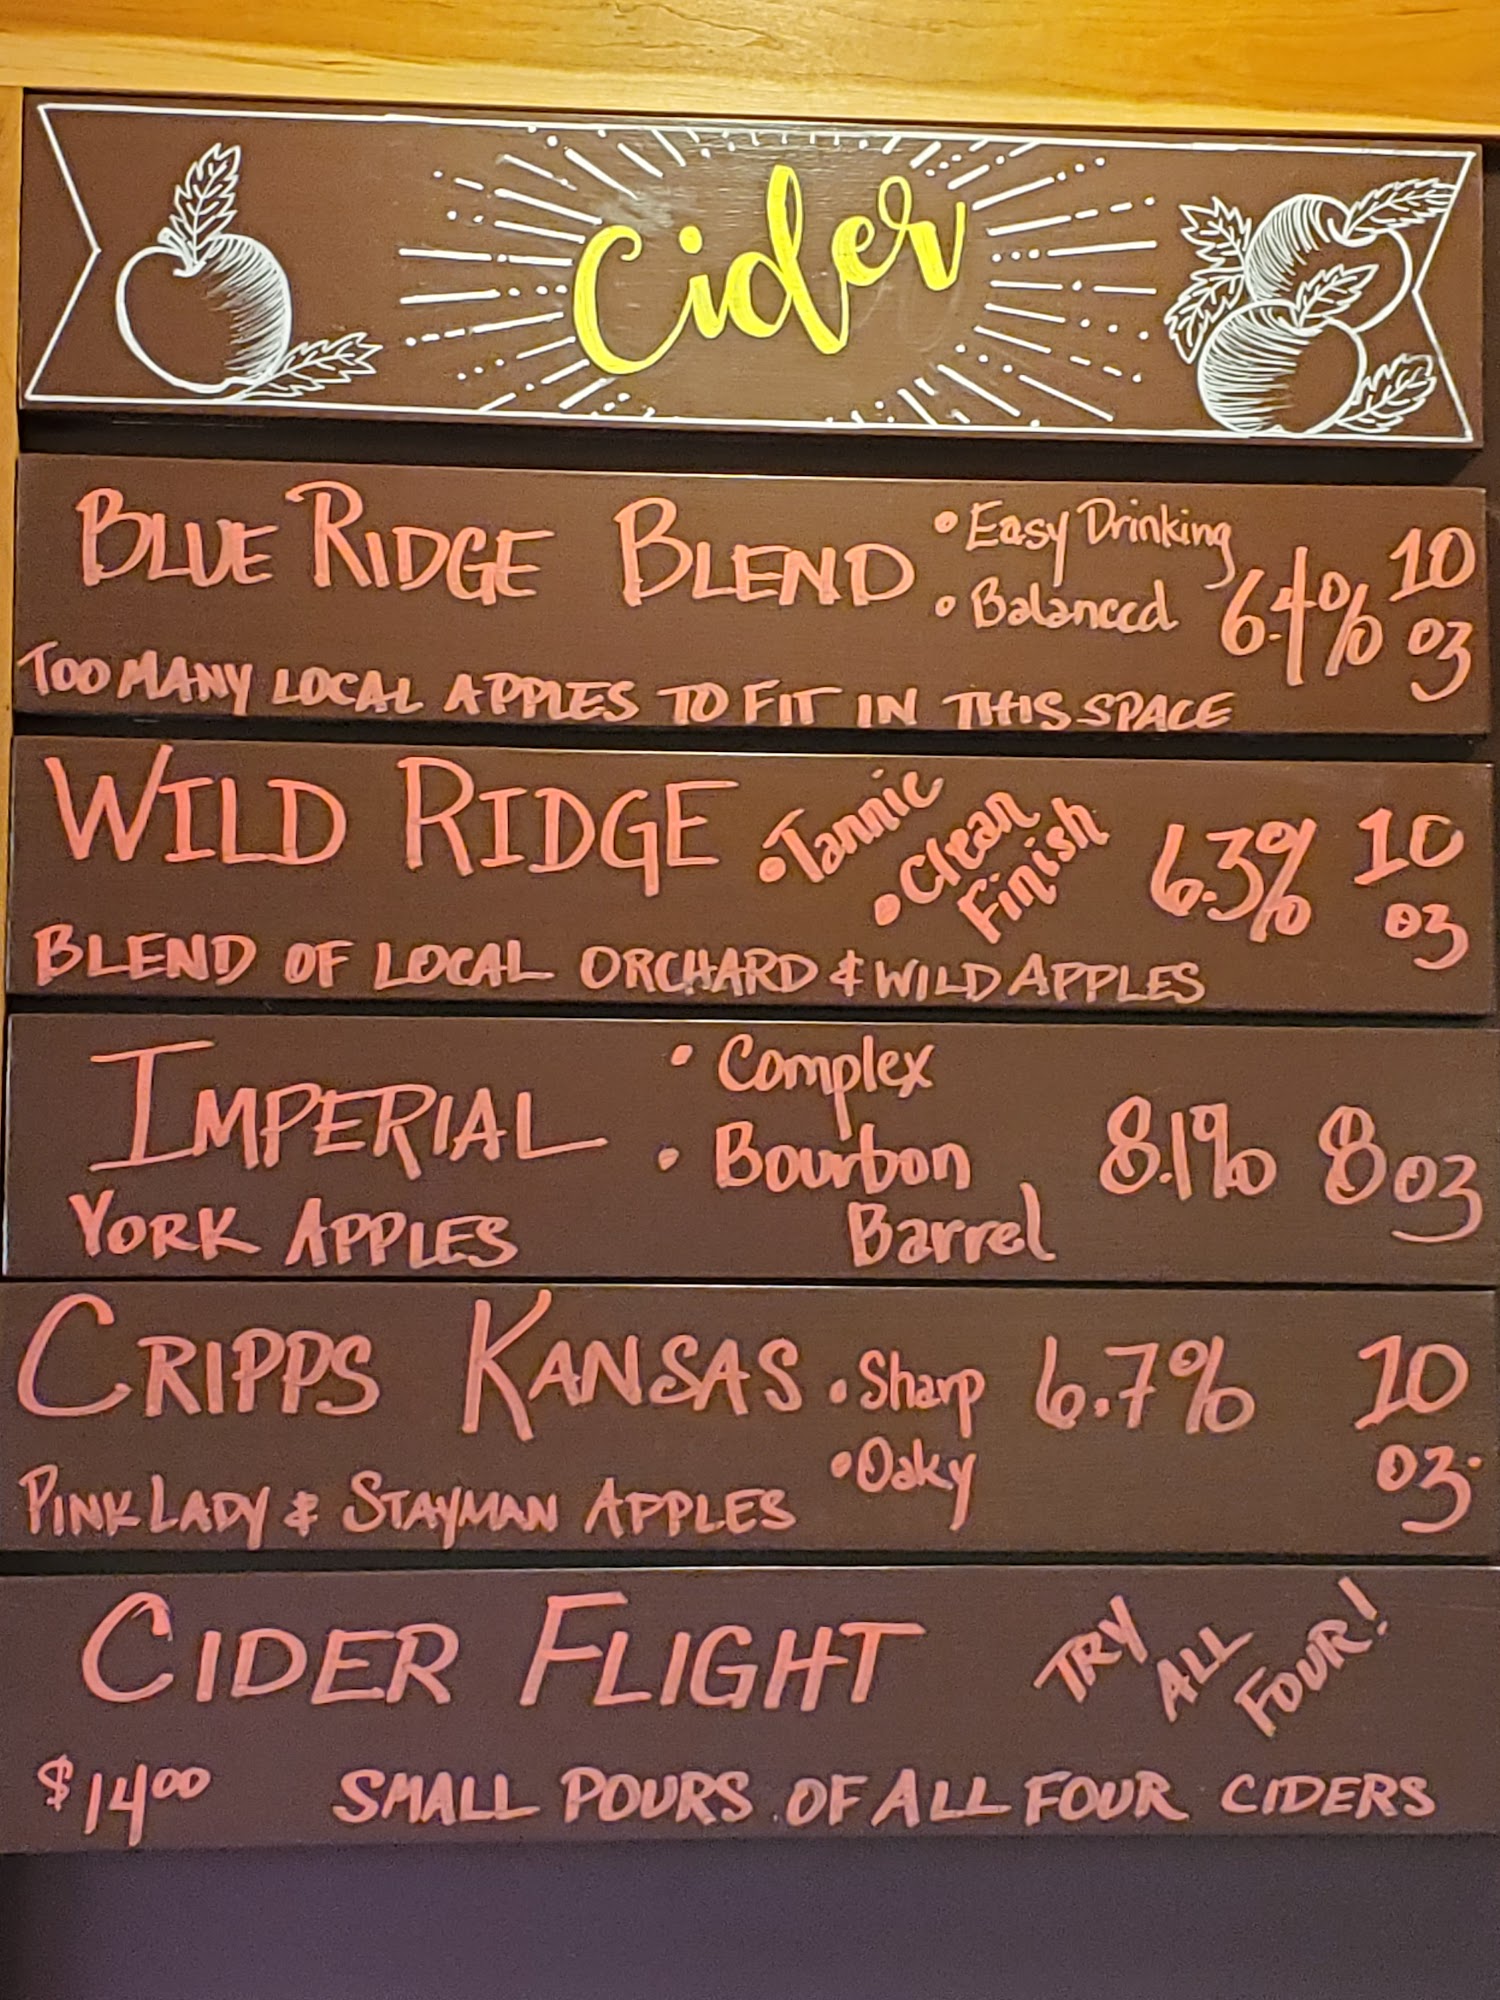 Cider
BLUE RIDGE BLEND
• Easy Drinking
• Balanced
6.4%
10
oz
TOO MANY LOCAL APPLES TO FIT IN THIS SPACE
WILD RIDGE
• Tannic
• Clean
Finish
6.3%
10
oz
BLEND OF LOCAL ORCHARD & WILD APPLES
IMPERIAL
• Complex
• Bourbon
Barrel
8.1% 8 oz
YORK APPLES
CRIPPS KANSAS
• Sharp
• Oaky
6.7%
10
oz.
PINK LADY & STAYMAN APPLES
CIDER FLIGHT
TRY
ALL
FOUR!
$14.00 SMALL POURS OF ALL FOUR CIDERS